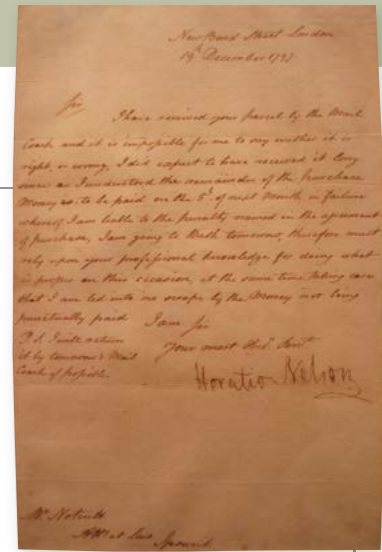 New Bond Street London
19th December 1797
Sir
I have received your parcel by the Mail
Coach and it is impossible for me to say wether it is
right, or wrong, I did expect to have received it long
since as I understood the remainder of the Purchase
Money was to be paid on the 5th of next Month in failure
whereof I am liable to the penalty named in the agreement
of purchase, I am going to Bath tomorrow, therefore must
rely upon your professional knowledge for doing what
is proper on this occasion, at the same time taking care
that I am led into no scrape by the Money not being
punctually paid I am Sir
Your most Obt. Servt
P.S. I will return
it by tomorrow's Mail
Coach if possible
Horatio Nelson
Mr.
at Law
Ipswich